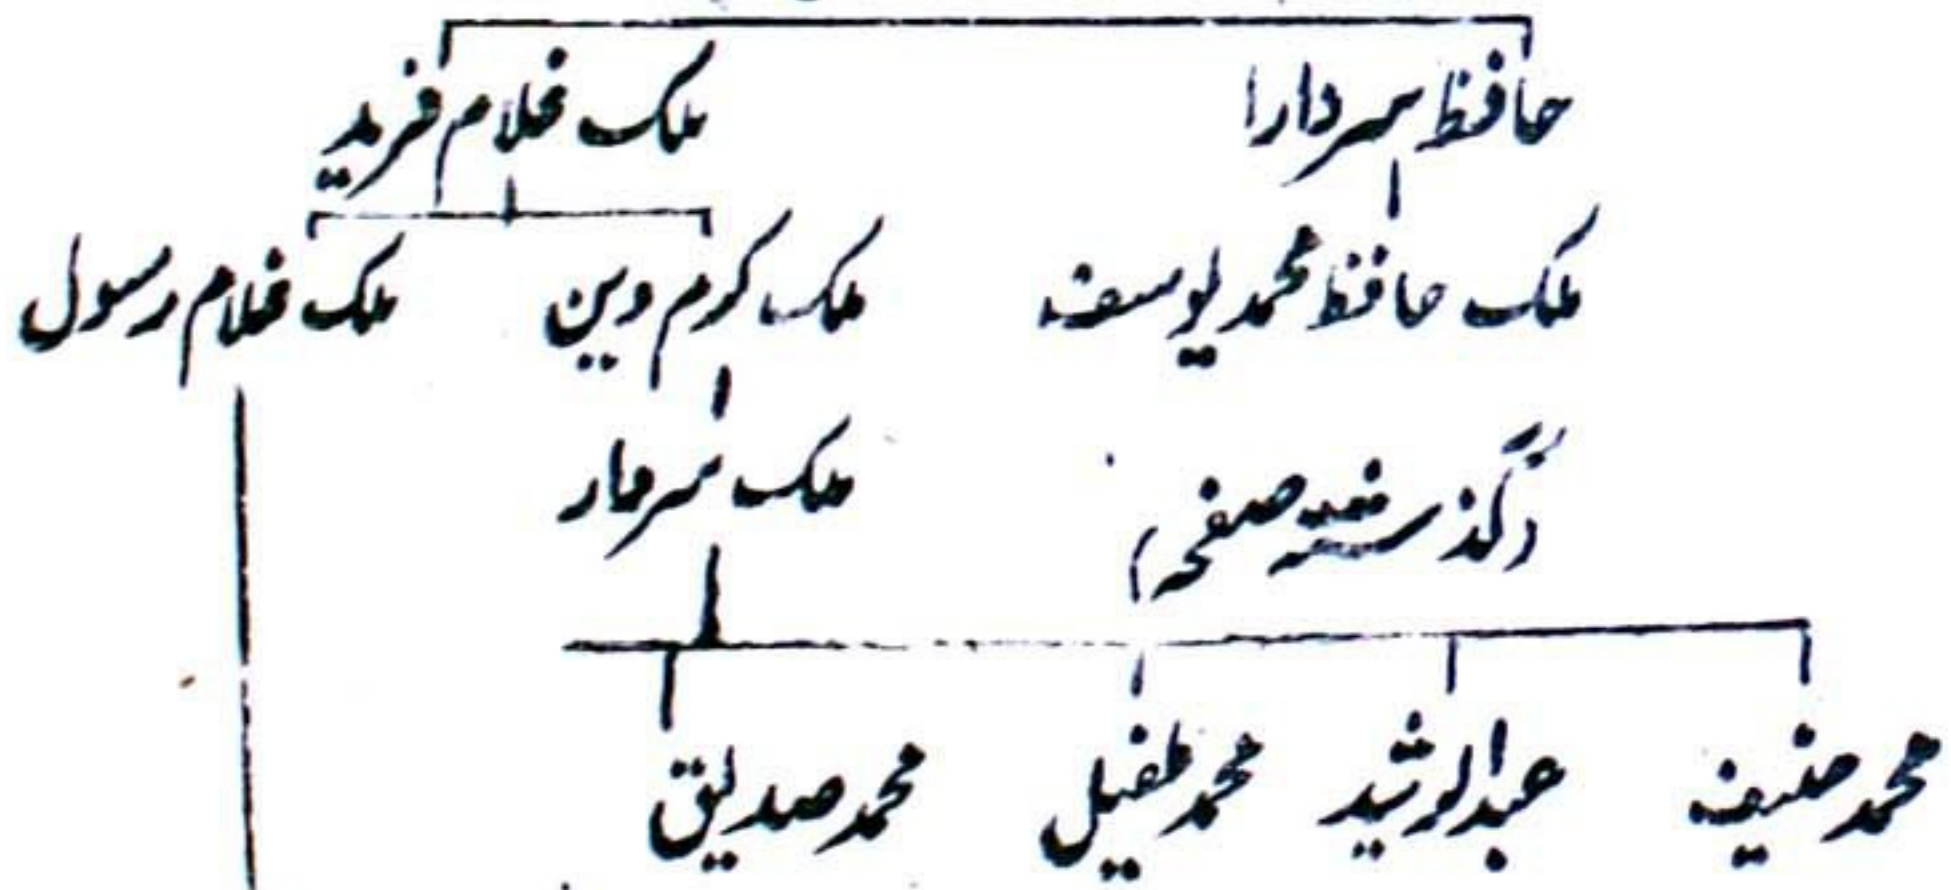 حافظ سردارا ملک غلام فرید
ملک حافظ محمد یوسف ملک کرم دین ملک غلام رسول
(گذشتہ صفحہ) ملک سردار
محمد حنیف عبدالرشید محمد طفیل محمد صدیق